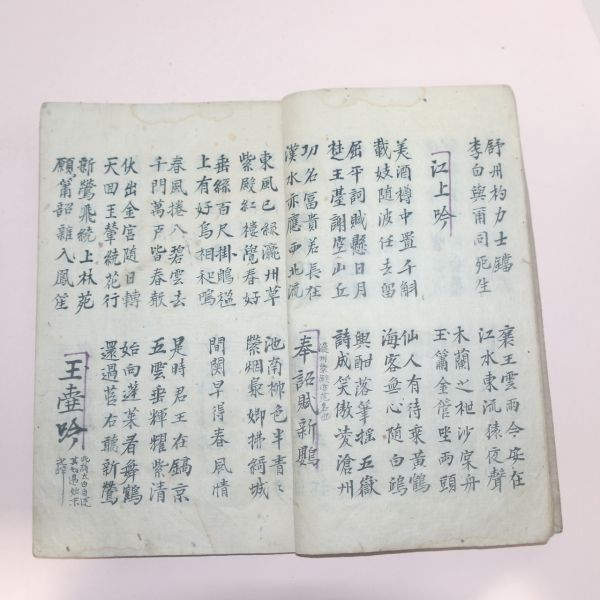 舒州杓力士鐺
李白與爾同死生
襄王雲雨今安在
江水東流猿夜聲
江上吟
木蘭之枻沙棠舟
玉簫金管坐兩頭
美酒樽中置千斛
載妓隨波任去留
仙人有待乘黃鶴
海客無心隨白鷗
屈平詞賦懸日月
楚王臺謝空山丘
興酣落筆搖五嶽
詩成笑傲凌滄州
功名富貴若長在
漢水亦應西北流
奉詔賦新鸎
東風已綠瀛州草
紫殿紅樓覺春好
池南柳色半青〻
縈烟裊娜拂綺城
垂絲百尺掛鵰楹
上有好鳥相和鳴
間關早得春風情
春風捲入碧雲去
千門萬户皆春聲
是時君王在鎬京
五雲垂輝耀紫清
仗出金宮隨日轉
天回玉輦統花行
始向蓬莱看舞鶴
還過茝右聽新鶯
新鶯飛統上林苑
願簫韶雜入鳳笙
玉壺吟